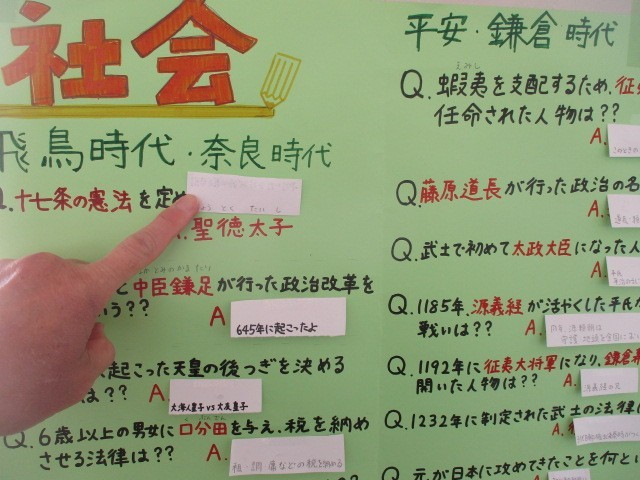 社会
飛鳥時代・奈良時代
Q.十七条の憲法を定め
A.聖徳太子
と中臣鎌足が行った政治改革を
いう??
A
645年に起こったよ
起こった天皇の後つぎを決める
は??
A
大海人皇子 vs 大友皇子
Q.6歳以上の男女に口分田を与え、税を納め
させる法律は??
A.
祖・調・庸などの税を納める
平安・鎌倉時代
えみし
Q.蝦夷を支配するため、征
任命された人物は??
A.
Q.藤原道長が行った政治の名
A.
Q.武士で初めて太政大臣になった人
A.
Q.1185年、源義経が活やくした平氏
戦いは??
A.
Q.1192年に征夷大将軍になり、鎌倉
開いた人物は??
A.
Q.1232年に制定された武士の法律
A.
Q.元が日本に攻めてきたことを何と